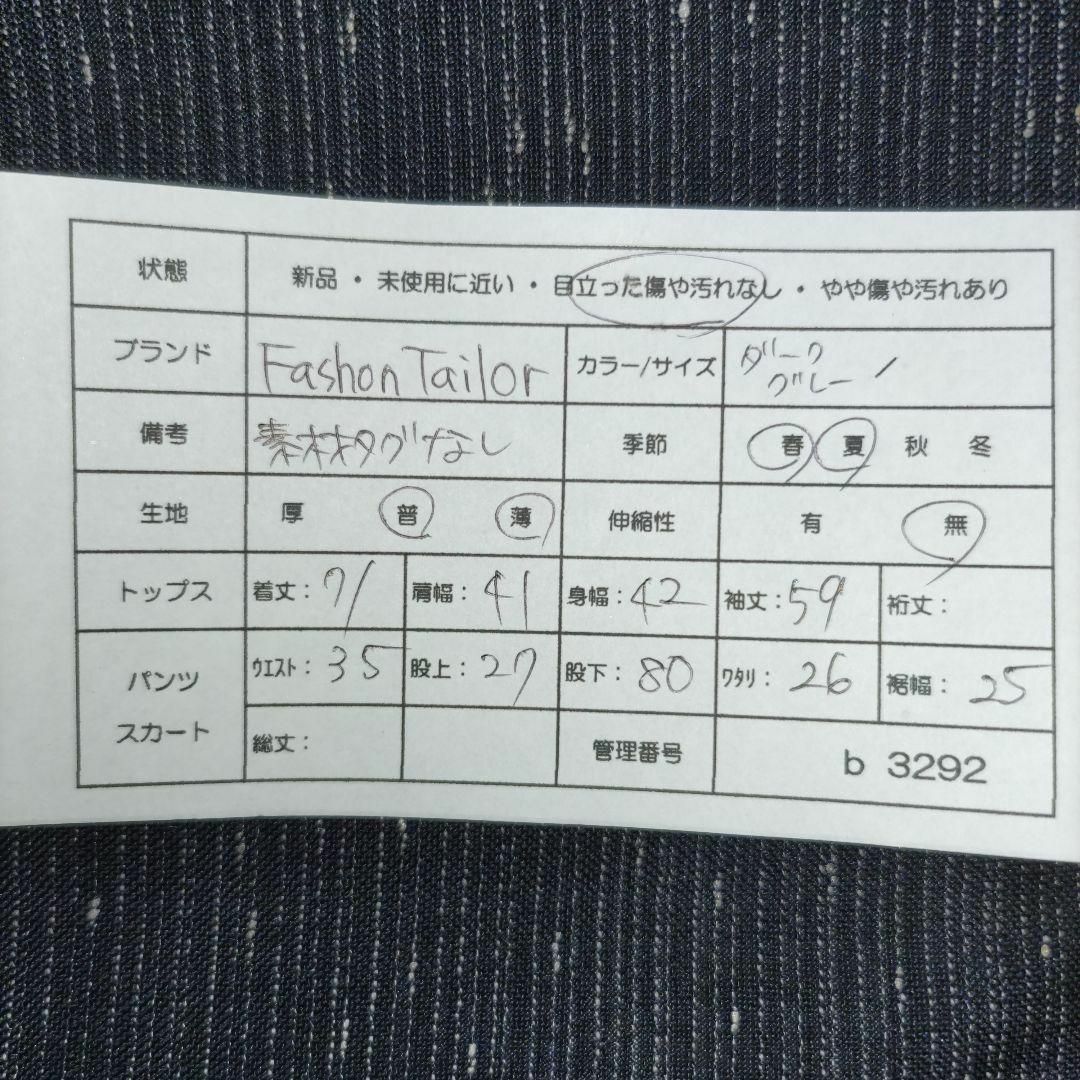 状態 新品 ・ 未使用に近い ・ 目立った傷や汚れなし ・ やや傷や汚れあり
ブランド Fashon Tailor カラー/サイズ ダークグレー /
備考 素材タグなし 季節 春 夏 秋 冬
生地 厚 普 薄 伸縮性 有 無
トップス 着丈：71 肩幅：41 身幅：42 袖丈：59 裄丈：
パンツ スカート ウエスト：35 股上：27 股下：80 ワタリ：26 裾幅：25
総丈： 管理番号 b 3292